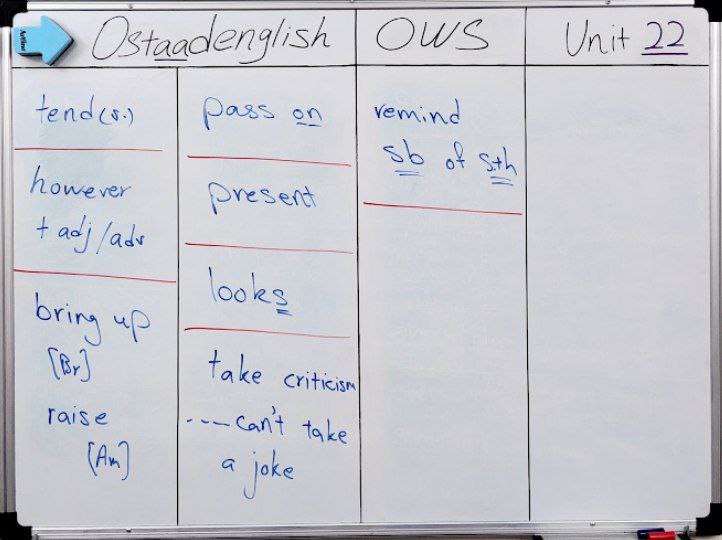 Ostaadenglish
OWS
Unit 22
tend (s.)
however
+ adj/adv
bring up
[Br]
raise
[Am]
pass on
present
looks
take criticism
---- can't take
a joke
remind
sb of s.th